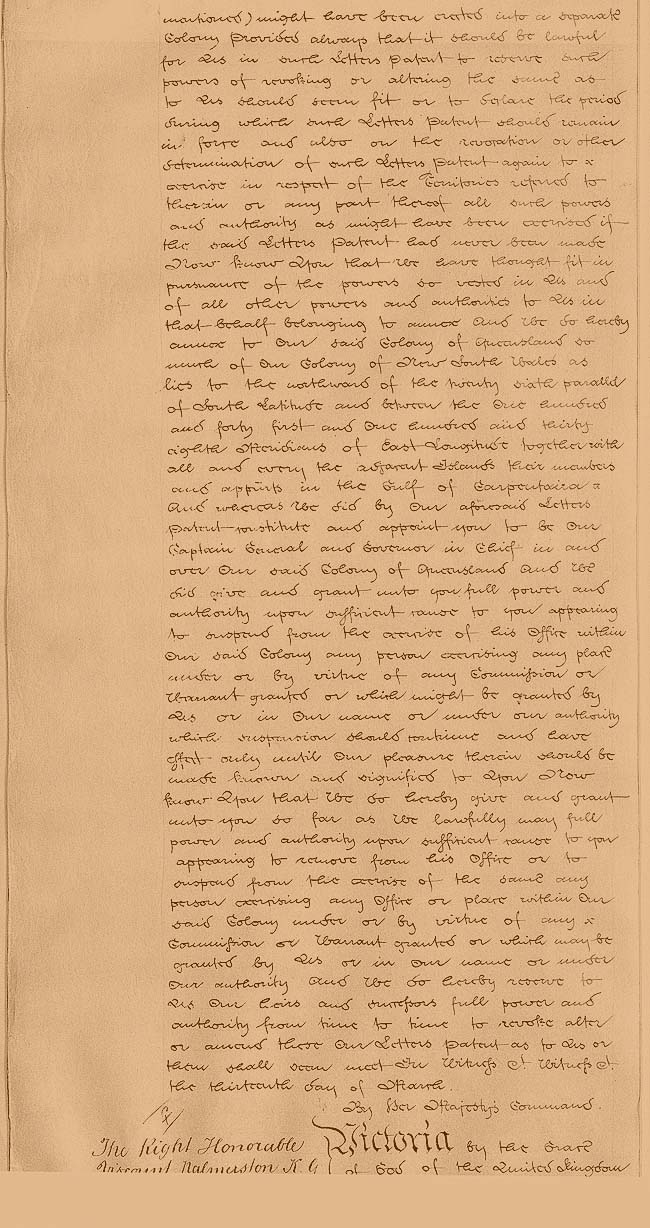 mentioned) might have been erected into a separate
Colony Provided always that it should be lawful
for Us in such Letters Patent to reserve such
powers of revoking or altering the same as
to Us should seem fit or to declare the period
during which such Letters Patent should remain
in force and also on the revocation or other
determination of such Letters Patent again to x
exercise in respect of the Territories referred to
therein or any part thereof all such powers
and authority as might have been exercised if
the said Letters Patent had never been made
Now know You that We have thought fit in
pursuance of the powers so vested in Us and
of all other powers and authorities to Us in
that behalf belonging to annex And We do hereby
annex to Our said Colony of Queensland so
much of Our Colony of New South Wales as
lies to the northward of the twenty sixth parallel
of South Latitude and between the One hundred
and forty first and One hundred and thirty
eighth Meridians of East Longitude together with
all and every the adjacent Islands their members
and appurts in the Gulf of Carpentaira x
And whereas We did by Our aforesaid Letters
Patent constitute and appoint you to be Our
Captain General and Governor in Chief in and
over Our said Colony of Queensland And We
did give and grant unto you full power and
authority upon sufficient cause to you appearing
to suspend from the exercise of his Office within
Our said Colony any person exercising any place
under or by virtue of any Commission or
Warrant granted or which might be granted by
Us or in Our name or under our authority
which suspension should continue and have
effect only until Our pleasure therein should be
made known and signified to You Now
know You that We do hereby give and grant
unto you so far as We lawfully may full
power and authority upon sufficient cause to you
appearing to remove from his Office or to
suspend from the exercise of the same any
person exercising any Office or place within Our
said Colony under or by virtue of any x
Commission or Warrant granted or which may be
granted by Us or in Our name or under
Our authority And We do hereby reserve to
Us Our heirs and successors full power and
authority from time to time to revoke alter
or amend these Our Letters Patent as to Us or
them shall seem meet In Witness &c Witness &c
the thirteenth day of March.
By Her Majesty's Command.
The Right Honorable
Viscount Palmerston K G
Victoria by the Grace
of God of the United Kingdom